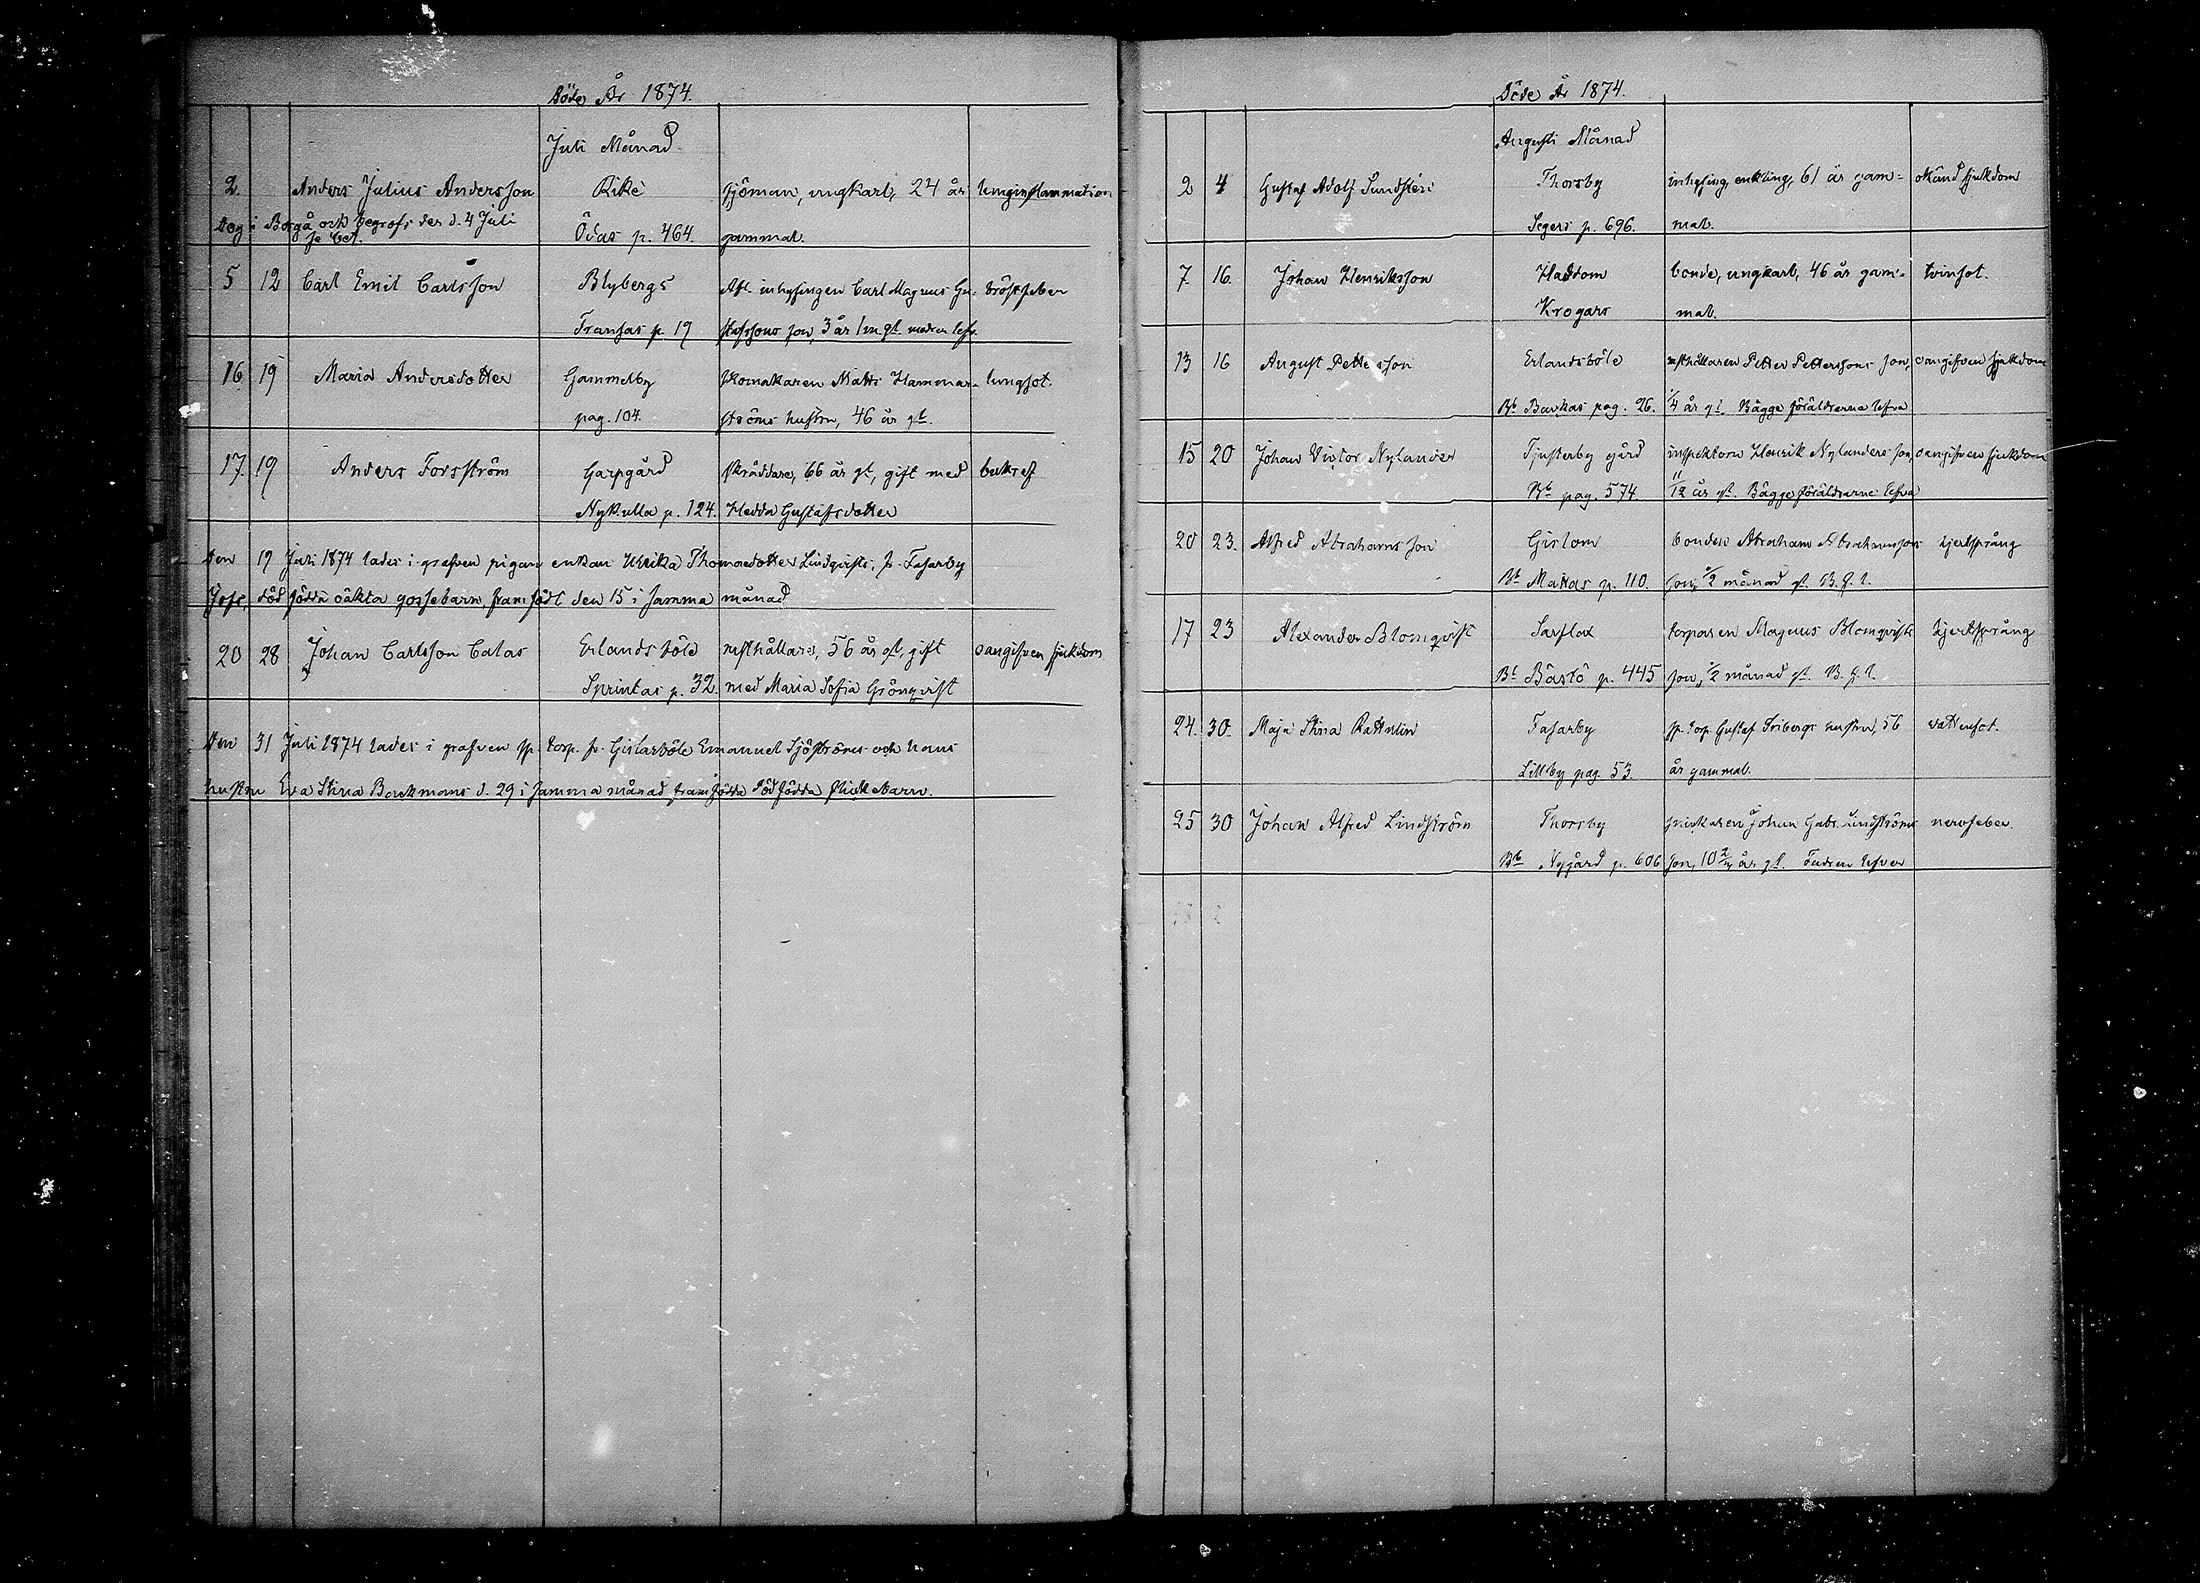 Döde År 1874.
Juli Månad
2. Anders Julius Andersson Rike sjöman, ungkarl, 24 år lunginflammation
Dog i Borgå och begrofs der d. 4 Juli Ödas p. 464. gammal.
se bet.
5 12 Carl Emil Carlsson Blybergs Afl. inhysingen Carl Magnus Gu- bröstfeber
Fransas p. 19 stafssons son, 3 år 1 m gl. modren lefv.
16 19 Maria Andersdotter Gammelby skomakaren Matts Hammar- lungsot.
pag. 104. ströms hustru, 46 år gl.
17. 19 Anders Forsström Garpgård skräddare, 66 år gl, gift med benröt
Nykulla p. 124. Hedda Gustafsdotter
Den 19 Juli 1874 lades i grafven pigan enkan Ulrika Thomasdotter Lindqvists, fr. Fasarby
Jofs, död födda oäkta gossebarn, framfödt den 15 i samma månad
20 28 Johan Carlsson Calas Erlandsböle rusthållare, 56 år gl, gift oangifven sjukdom
Sprintas p. 32. med Maria Sofia Grönqvist
Den 31 Juli 1874 lades i grafven sp. torp. fr. Gislarböle Emanuel Sjöströms och hans
hustru Eva Stina Backmans d. 29 i samma månad framfödda dödfödda flickebarn.
Döde År 1874.
Augusti Månad
2 4 Gustaf Adolf Sundstén Thorsby inhysing, enkling, 61 år gam- okänd sjukdom
Segers p. 696. mal.
7. 16. Johan Henriksson Haddom bonde, ungkarl, 46 år gam- tvinsot.
Krogars mal.
13 16 August Pettersson Erlandsböle rusthållaren Petter Petterssons son, oangifven sjukdom
Bb. Backas pag. 26. 1/4 år gl. Bägge föräldrarne lefva
15 20 Johan Victor Nylander Tjusterby gård inspektorn Henrik Nylanders son, oangifven sjukdom
Bb. pag. 574. 11/12 år gl. Bägge föräldrarne lefva
20 23. Alfred Abrahamsson Gislom bonden Abraham Abrahamssons hjertsprång
Bb. Mattas p. 110. son, 1/2 månad gl. B. f. l.
17 23 Alexander Blomqvist Sarflax torparen Magnus Blomqvists hjertsprång
Bb. Båstö p. 445 son, 1/2 månad gl. B. f. l.
24. 30. Maja Stina Rattelin Fasarby sp. torp. Gustaf Fribergs hustru, 56 vattensot.
Lillsby pag. 53. år gammal.
25 30 Johan Alfred Lindström Thorsby snickaren Johan Gabr. Lindströms nervfeber.
Bb. Nygård p. 606 son, 10 år gl. Fadren lefver